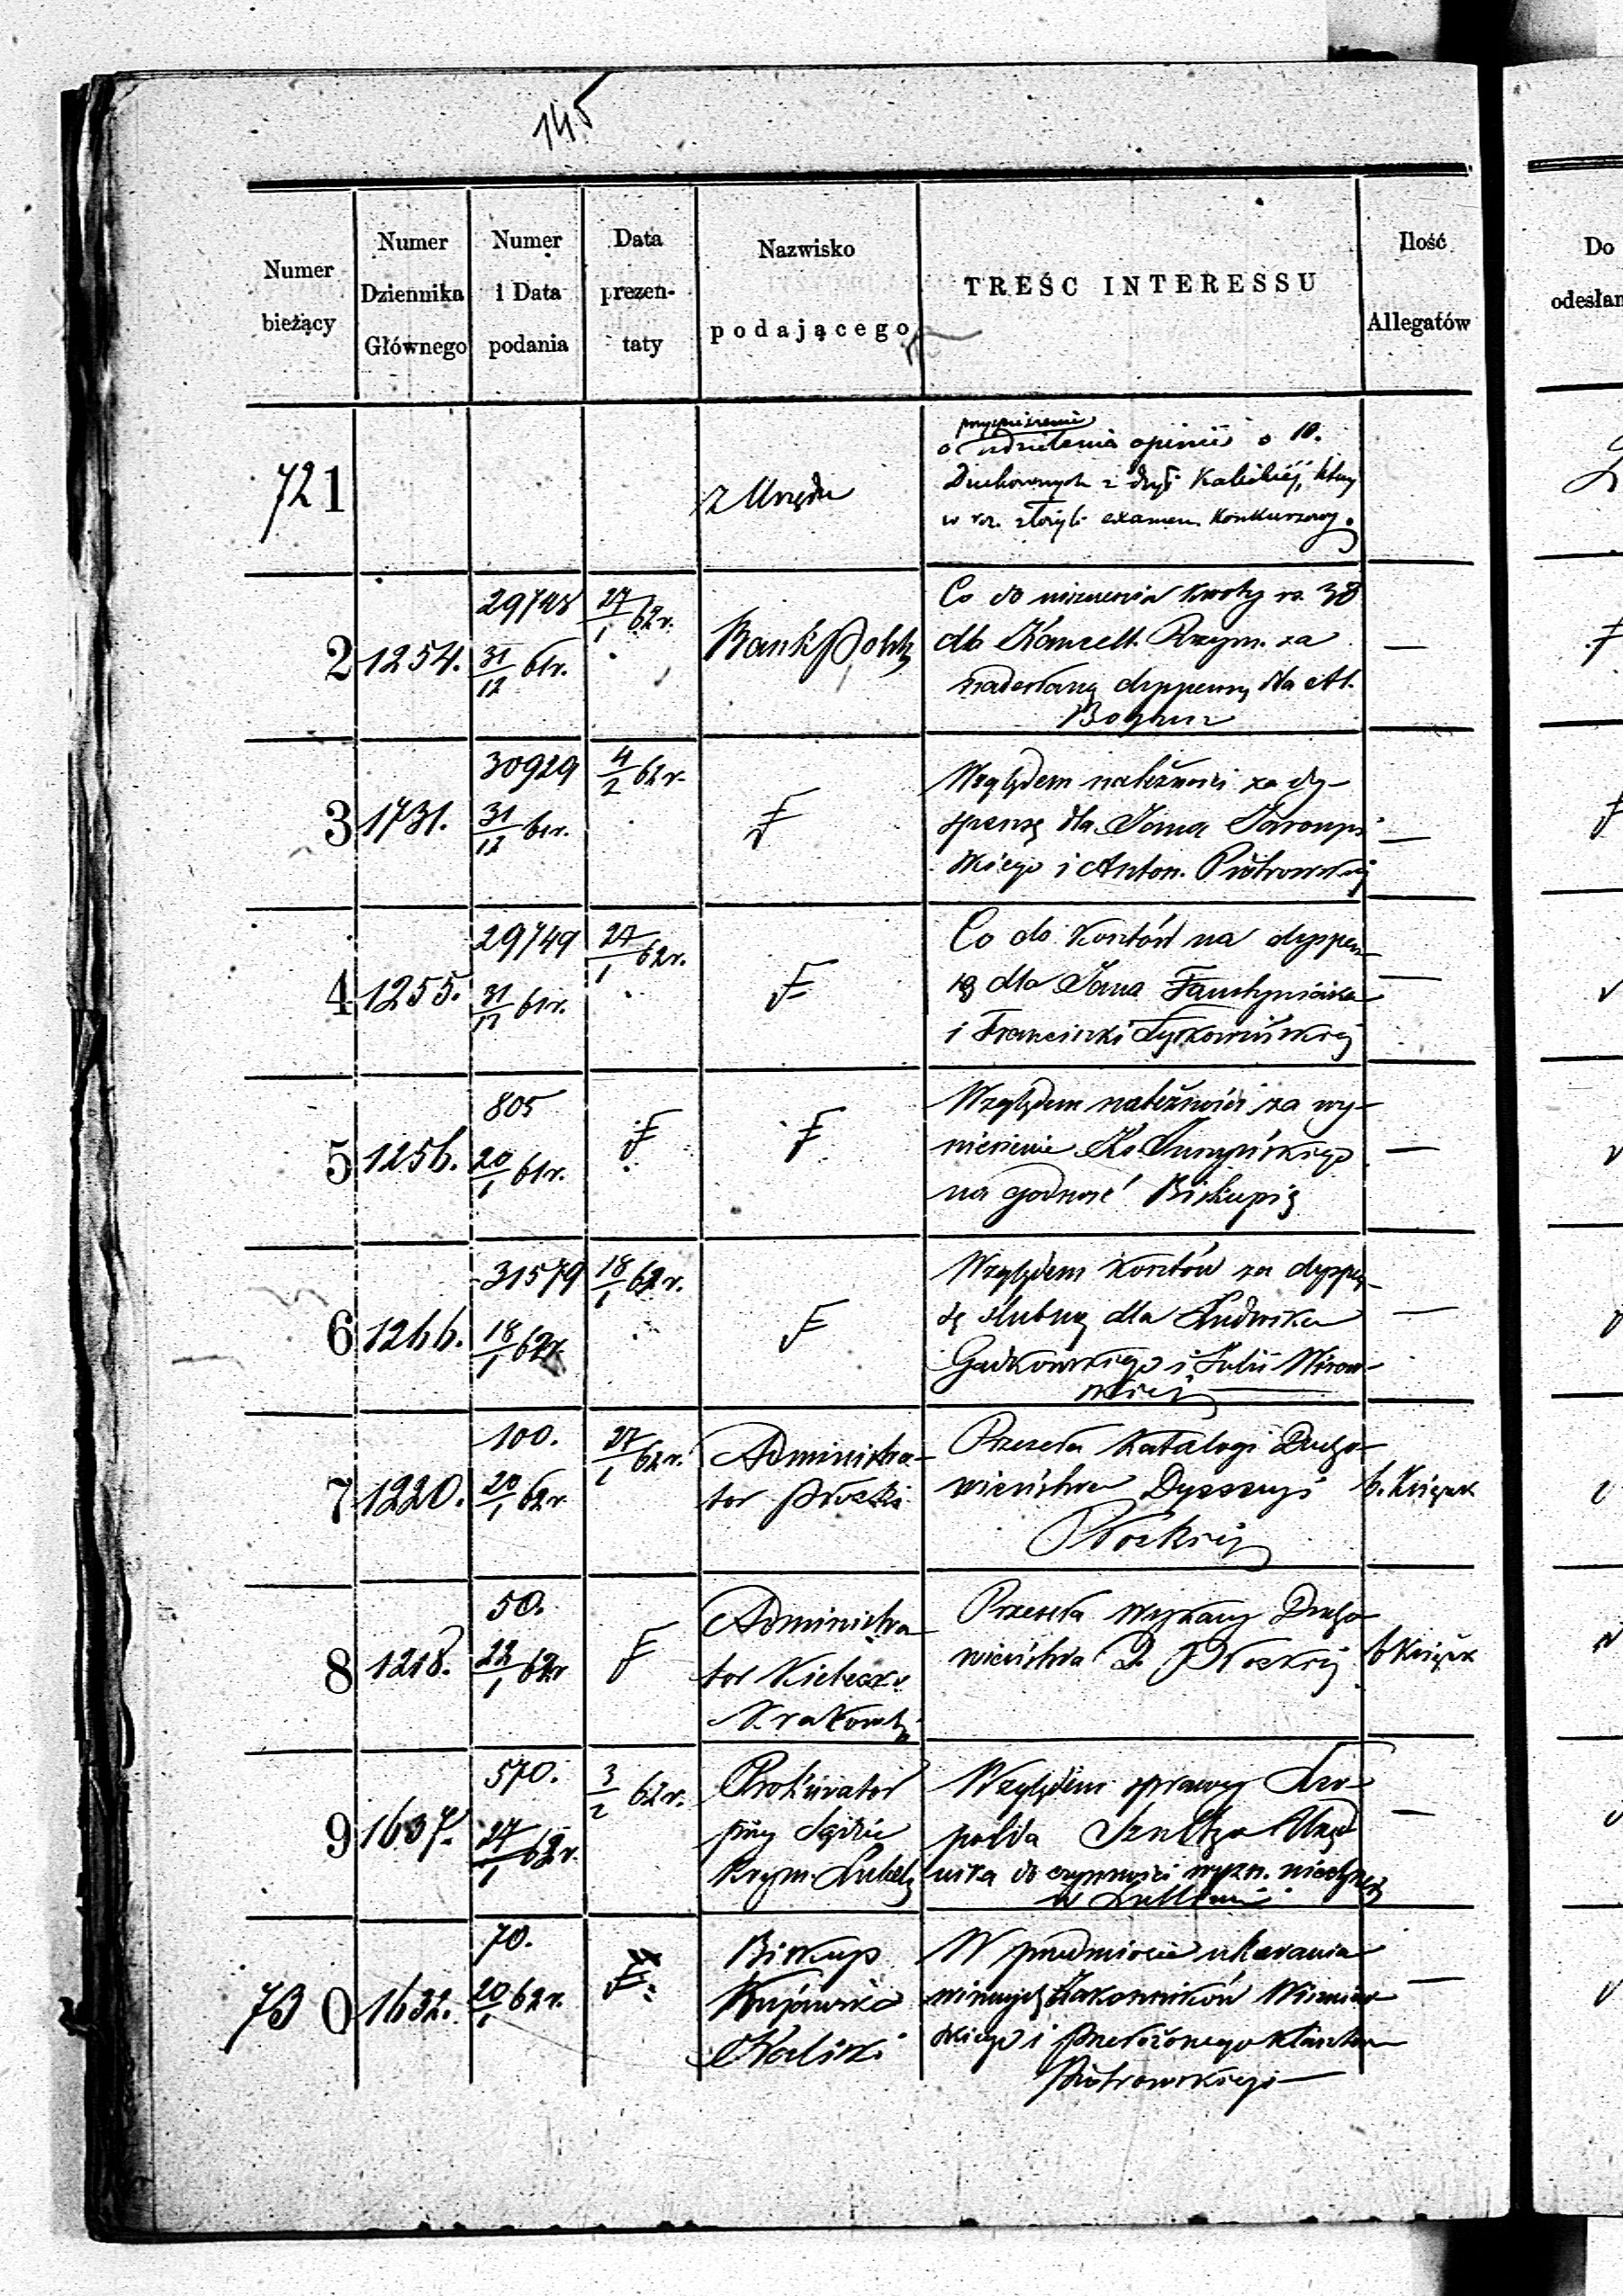 145
Numer bieżący
Numer Dziennika Głównego
Numer i Data podania
Data prezen-taty
Nazwisko podającego
TREŚC INTERESSU
Ilość Allegatów
Do odesłan
721
z Urzędu
przyspieszenie
o udzielenia opinii o 10.
Duchownych z dyj. Kaliskiéj, którzy
w r.z. złożyli examen Konkursowy.
2 1254.
29748
31/12 61r.
27/1 62r.
Bank Polski
Co do kwoty rs. 38
dla Kancell. Rzym. za
nadesłaną dyspensę dla Al.
3 1731.
30929
31/12 61r.
4/2 62r.
F
Względem należności za dy-
spensę dla Jana
skiego i Anton. Piotrowskiéj
4 1255.
29749
31/12 61r.
27/1 62r.
F
Co do kosztów na dyspen-
sę dla Jana
i Franciszki
5 1256.
805
20/1 61r.
F
F
Względem należności za wy-
niesienie Ks.
na godność Biskupią
6 1266.
31579
18/1 62r.
18/1 62r.
F
Względem kosztów za dyspen-
sę ślubną dla Ludwika
i Julii
skiéj
7 1220.
100.
20/1 62r.
27/1 62r.
Administra-
tor Płocki
Przeseła Katalogi Ducho-
wieństwa Dyecezyi
Płockiéj
6. Książek
8 1218.
50.
22/1 62r.
F
Administra-
tor Kielecko
Krakowsk.
Przeseła wykazy Ducho-
wieństwa D. Płockiéj
6 Książek
9 1637.
570.
27/1 62r.
3/2 62r.
Prokurator
przy Sądzie
Krym. Lubelsk.
Względem sprawy Leo-
polda Szultza Urzęd-
nika do czynności wyzn.
w Lublinie
730 1632.
70.
20/1 62r.
F
Biskup
Kujawsko
Kaliski
W przedmiocie ukarania
winnych Zakonników
skiego i Przełożonego Klasztoru
Piotrowskiego